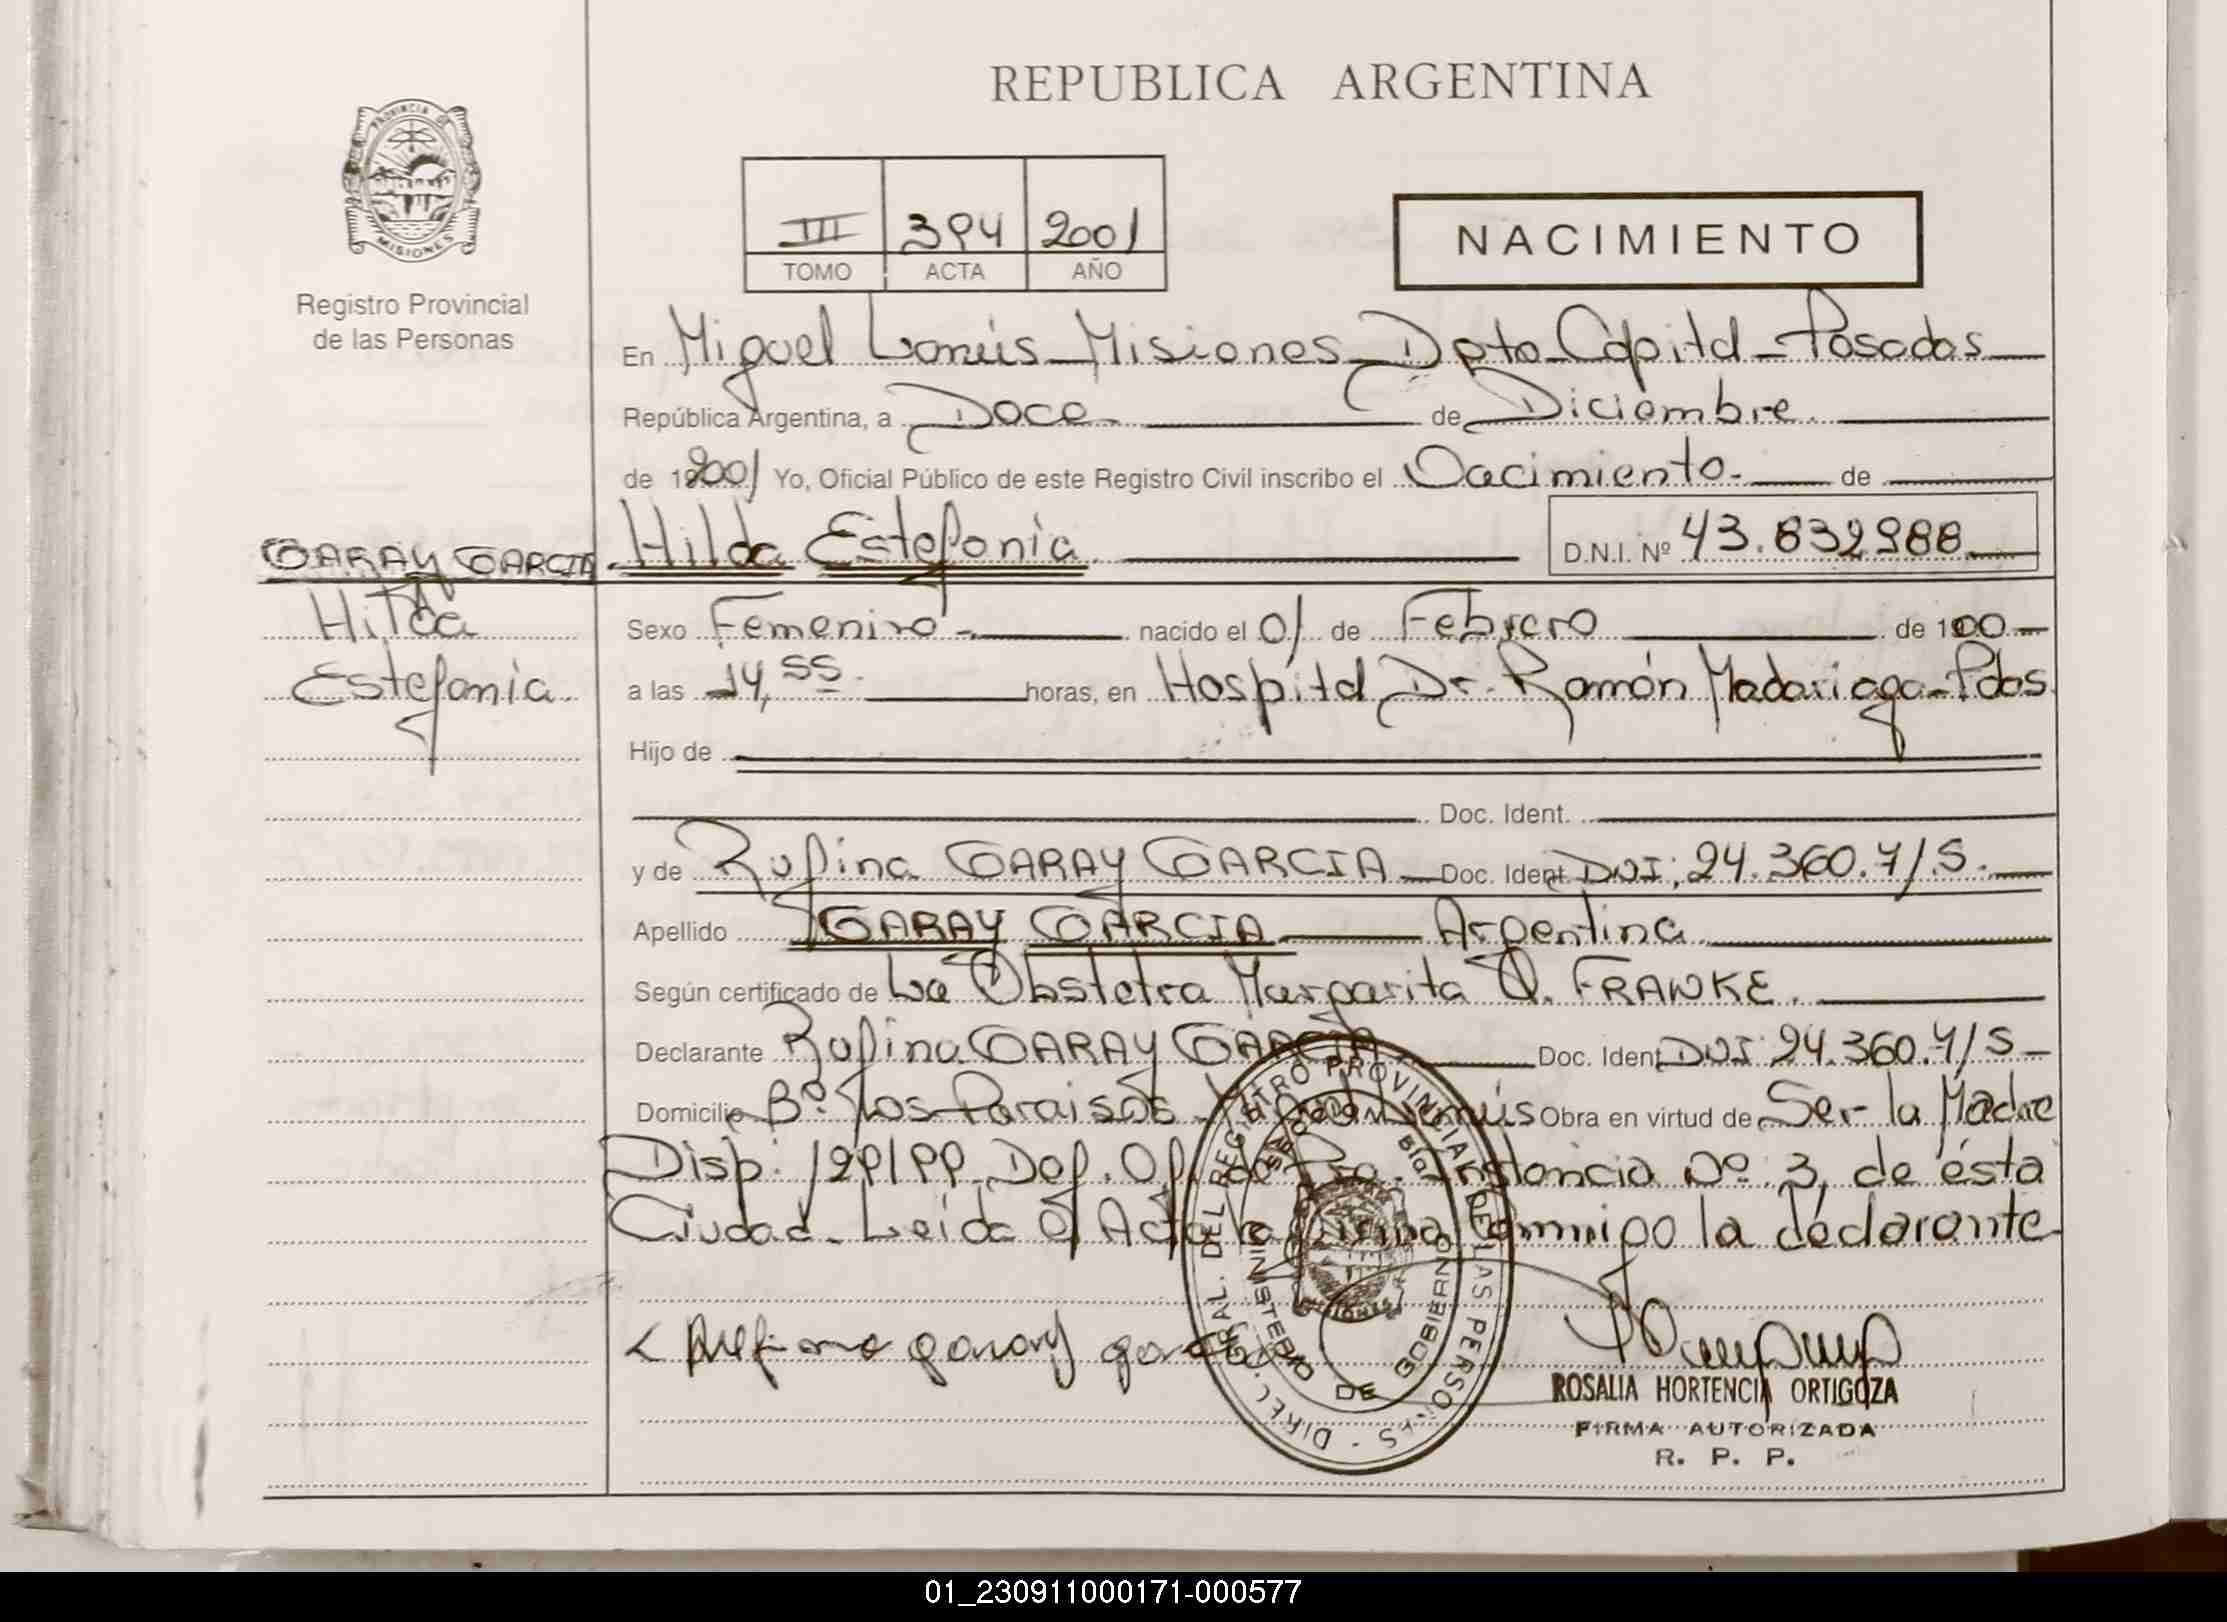 REPUBLICA ARGENTINA
PROVINCIA DE
MISIONES
Registro Provincial
de las Personas
III 394 2001
TOMO ACTA AÑO
NACIMIENTO
En Miguel Lanús Misiones Dpto Capital Posadas
República Argentina, a Doce de Diciembre
de 192001 Yo, Oficial Público de este Registro Civil inscribo el Nacimiento de
GARAY GARCIA Hilda Estefania D.N.I. Nº 43.832988
Hilda
Estefania
Sexo Femenino nacido el 01 de Febrero de 1900
a las 14,55 horas, en Hospital Dr. Ramón Madariaga Pdas
Hijo de
Doc. Ident.
y de Rufina GARAY GARCIA Doc. Ident. DNI: 24.360.715.
Apellido GARAY GARCIA Argentina
Según certificado de La Obstetra Margarita Q. FRANKE.
Declarante Rufina GARAY GARCIA Doc. Ident. DNI 24.360.715
Domicilio Bº Los Paraisos Lanús Obra en virtud de Ser la Madre
Disp. 129/99 Def. Of. de Pra. Instancia Nº 3, de ésta
Ciudad. Leida el Acta la firma Conmigo la declarante
Rufina garay garcia
DIREC. GRAL. DEL REGISTRO PROVINCIAL DE LAS PERSONAS
MINISTERIO DE GOBIERNO
ROSALIA HORTENCIA ORTIGOZA
FIRMA AUTORIZADA
R. P. P.
01_230911000171-000577